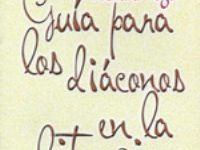 Guía para
los diáconos
en la